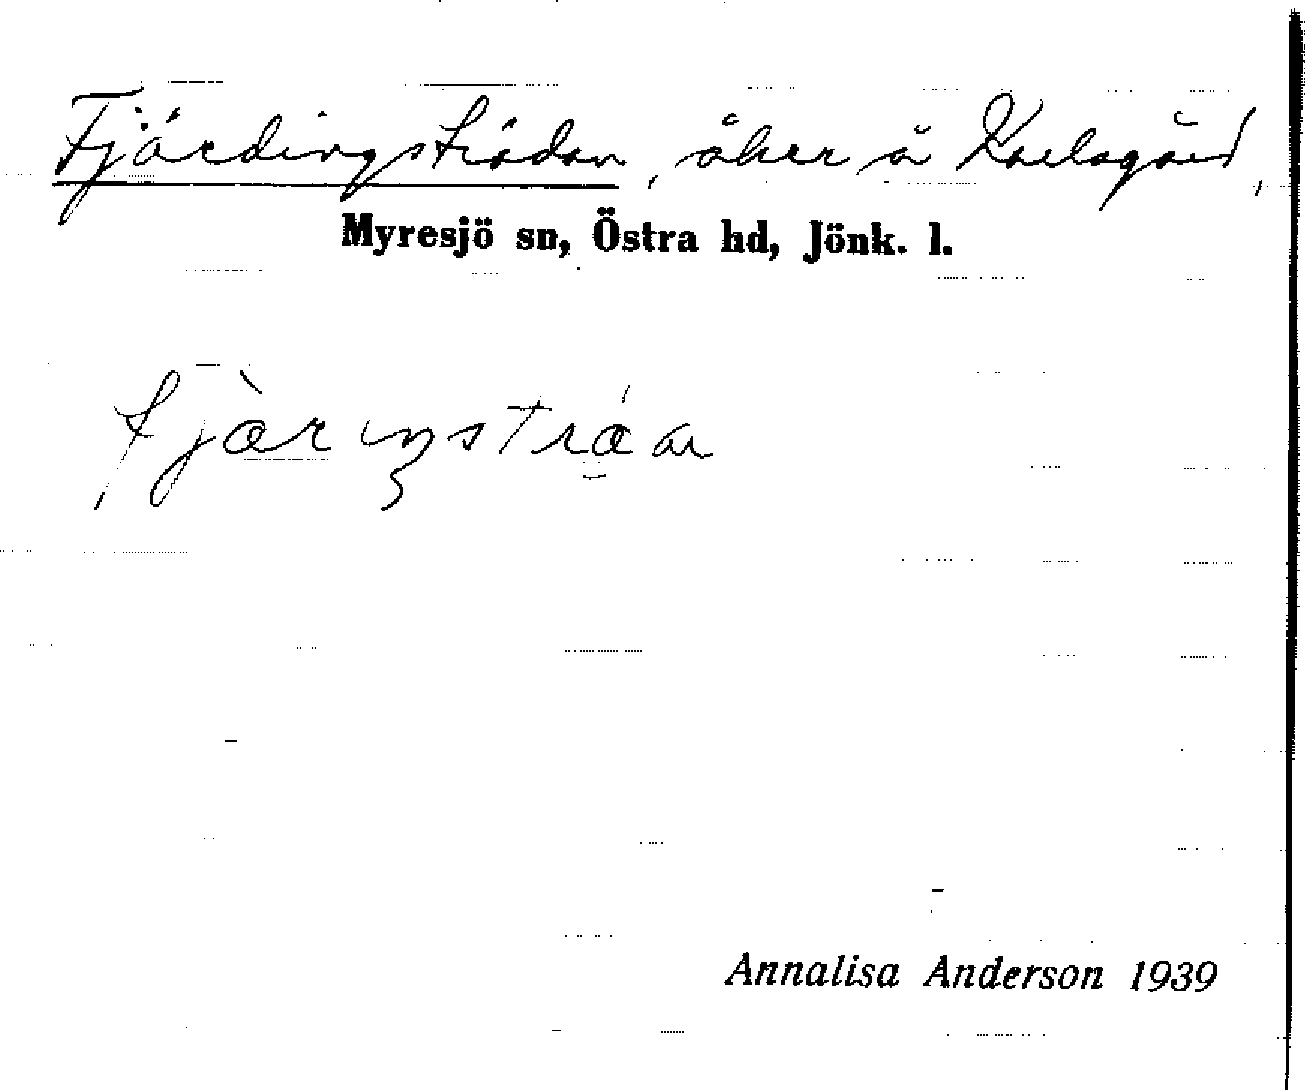 Fjärdingsträdan, åker å Karlsgård,
Myresjö sn, Östra hd, Jönk. l.
fjæ̀rıŋstráan
Annalisa Anderson 1939